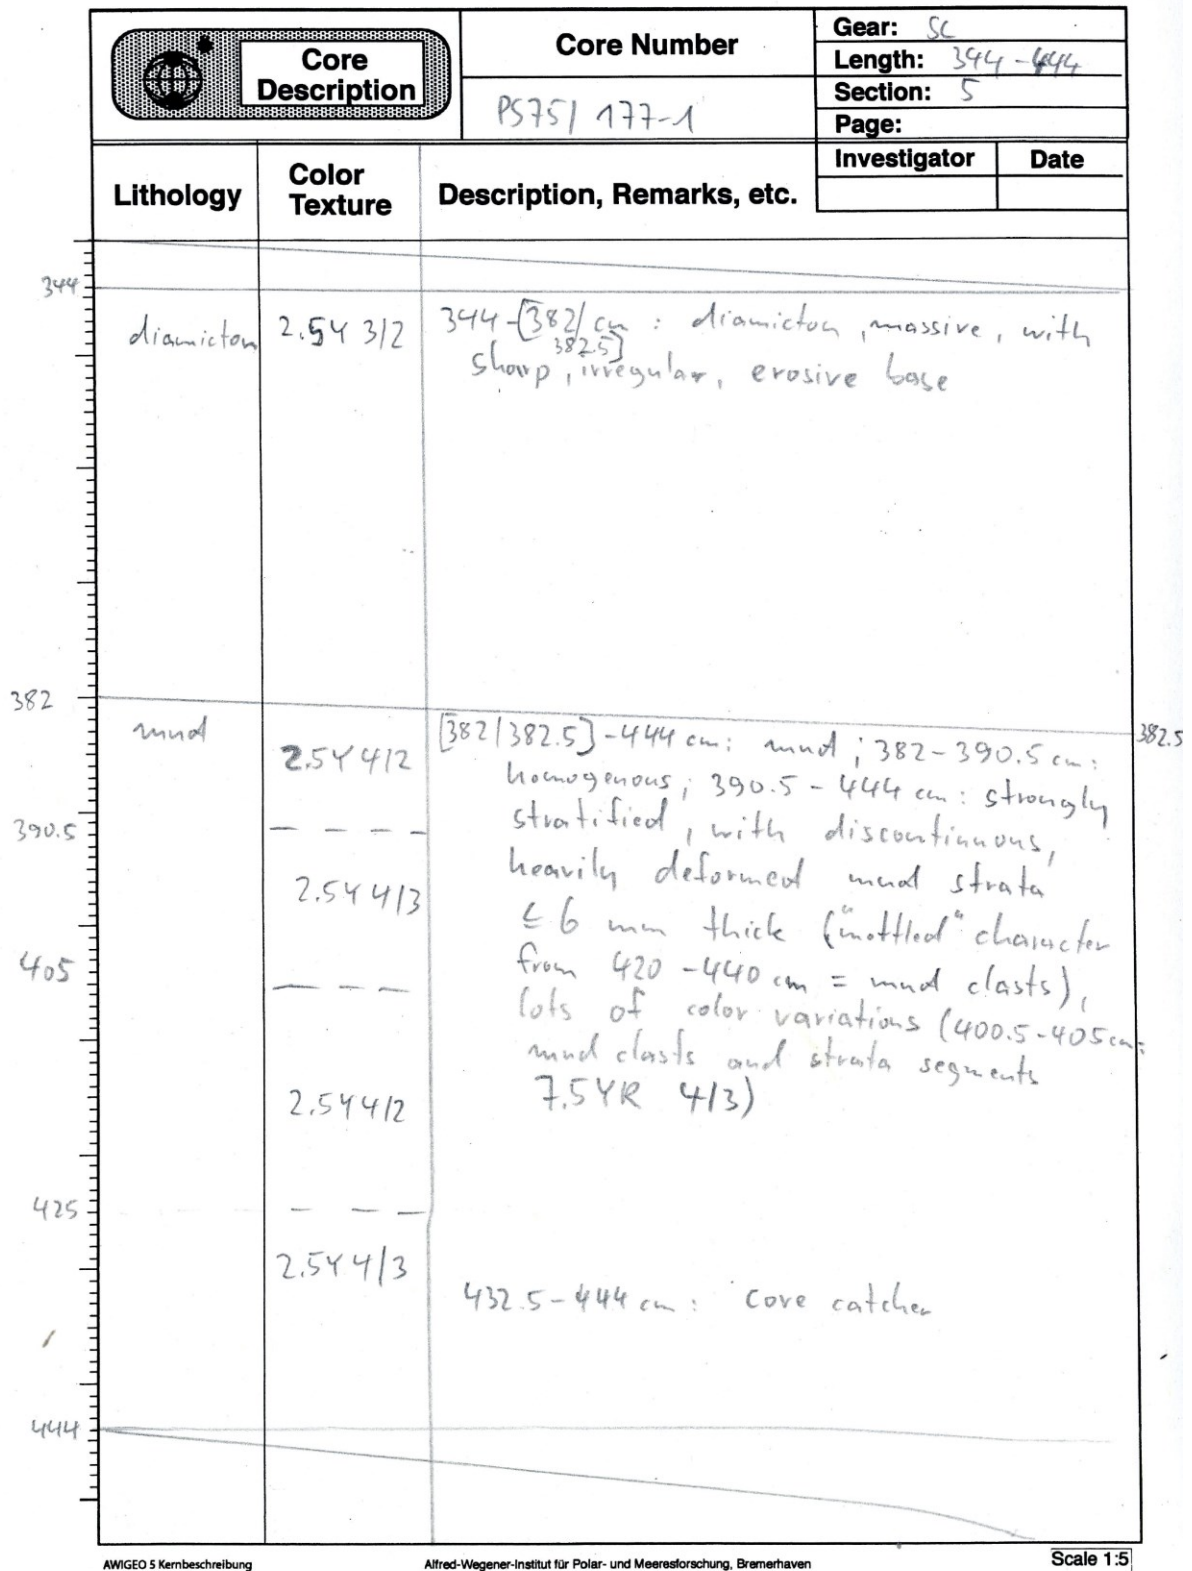 Core
Description
Core Number
PS75/ 177-1
Gear: SC
Length: 344-444
Section: 5
Page:
Investigator
Date
Lithology
Color
Texture
Description, Remarks, etc.
344
diamicton
2.5Y 3/2
344-[382/ cm : diamicton, massive, with
382.5]
sharp, irregular, erosive base
382
382.5
mud
2.5Y 4/2
[382/382.5]-444 cm: mud; 382-390.5 cm:
homogenous; 390.5-444 cm: strongly
390.5
stratified, with discontinuous,
heavily deformed mud strata
2.5Y 4/3
≤ 6 mm thick ("mottled" character
405
from 420-440 cm = mud clasts),
lots of color variations (400.5-405 cm:
mud clasts and strata segments
7.5YR 4/3)
2.5Y 4/2
425
2.5Y 4/3
432.5-444 cm: core catcher
444
AWIGEO 5 Kernbeschreibung
Alfred-Wegener-Institut für Polar- und Meeresforschung, Bremerhaven
Scale 1:5